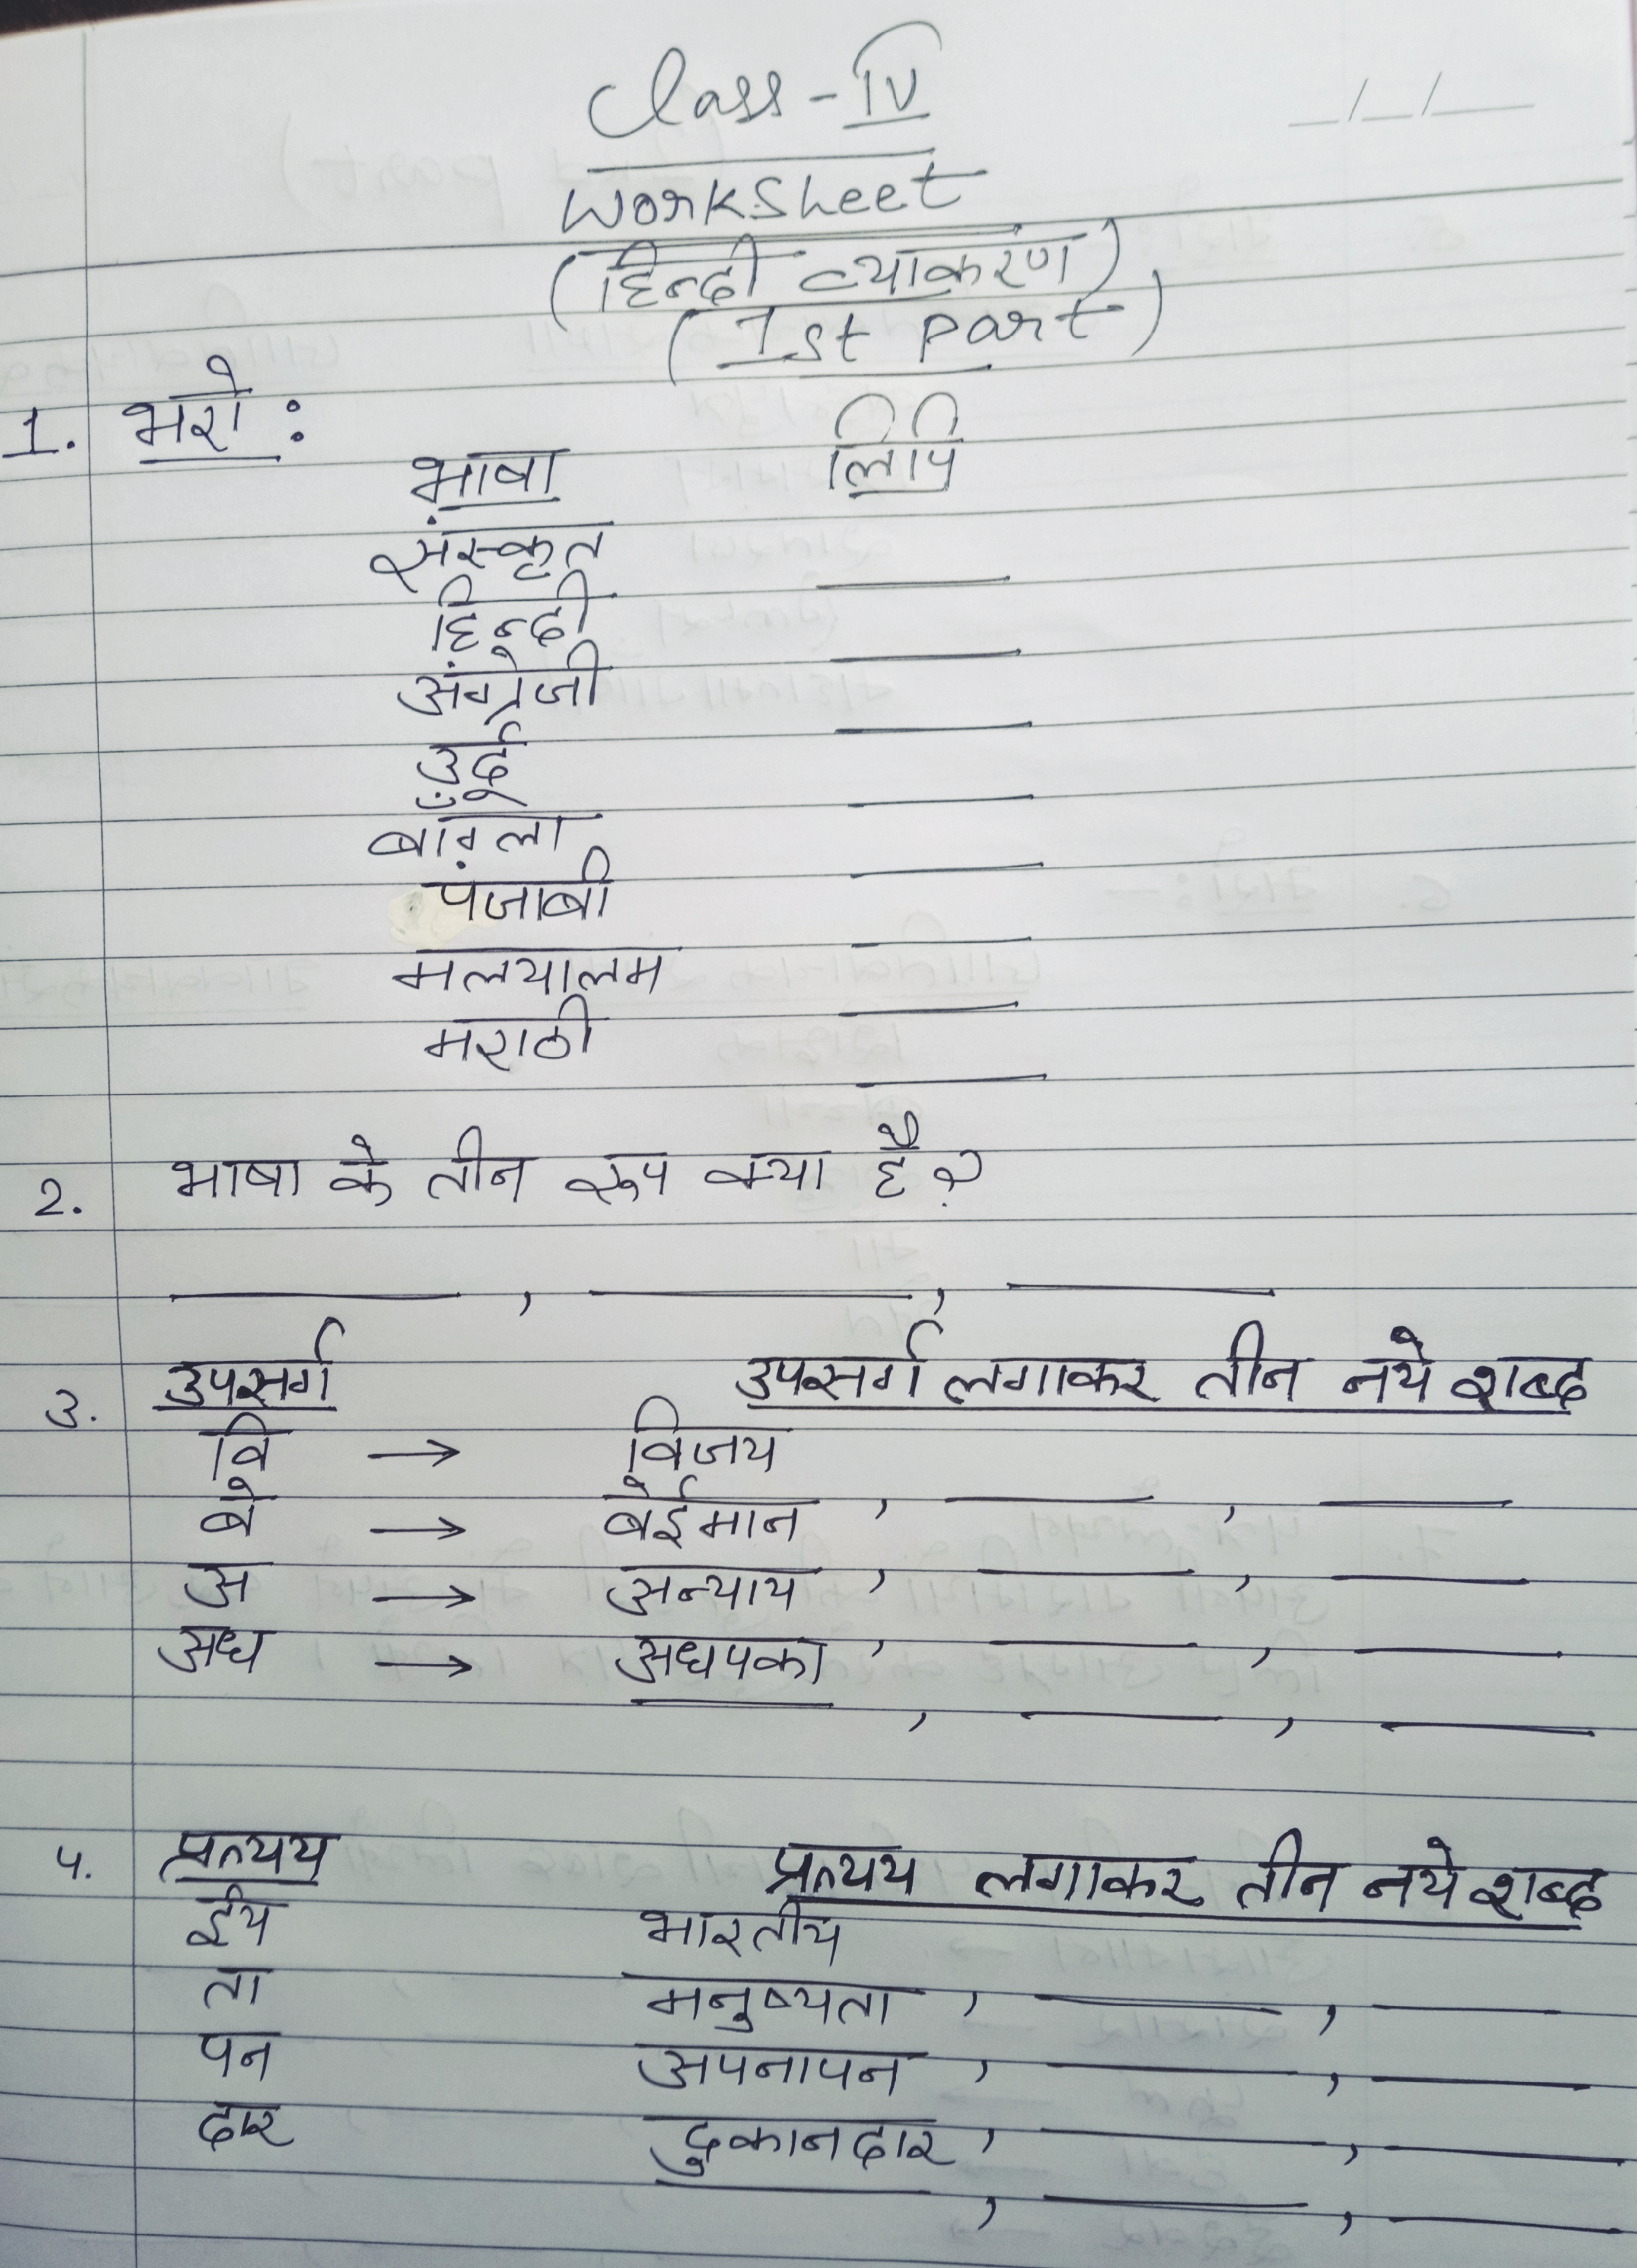 Class - IV
_/_/__
Worksheet
(हिन्दी व्याकरण)
(1st part)
1. भरो :
भाषा लिपि
संस्कृत ____
हिन्दी ____
अंग्रेजी ____
उर्दू ____
बाँग्ला ____
पंजाबी ____
मलयालम ____
मराठी ____
2. भाषा के तीन रूप क्या है?
____, ____, ____
3. उपसर्ग उपसर्ग लगाकर तीन नये शब्द
वि → विजय, ____, ____
बे → बेईमान, ____, ____
अ → अन्याय, ____, ____
अध → अधपका, ____, ____
4. प्रत्यय प्रत्यय लगाकर तीन नये शब्द
ईय भारतीय, ____, ____
ता मनुष्यता, ____, ____
पन अपनापन, ____, ____
दार दुकानदार, ____, ____